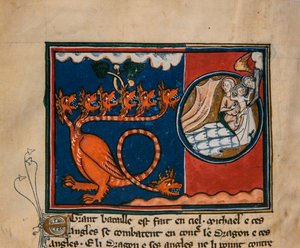 E Grant bataille est fait en ciel. Michael e ces
Angles se combatirent en contre le Dragon e ces
angles. E li Dragon e ses angles ne contre